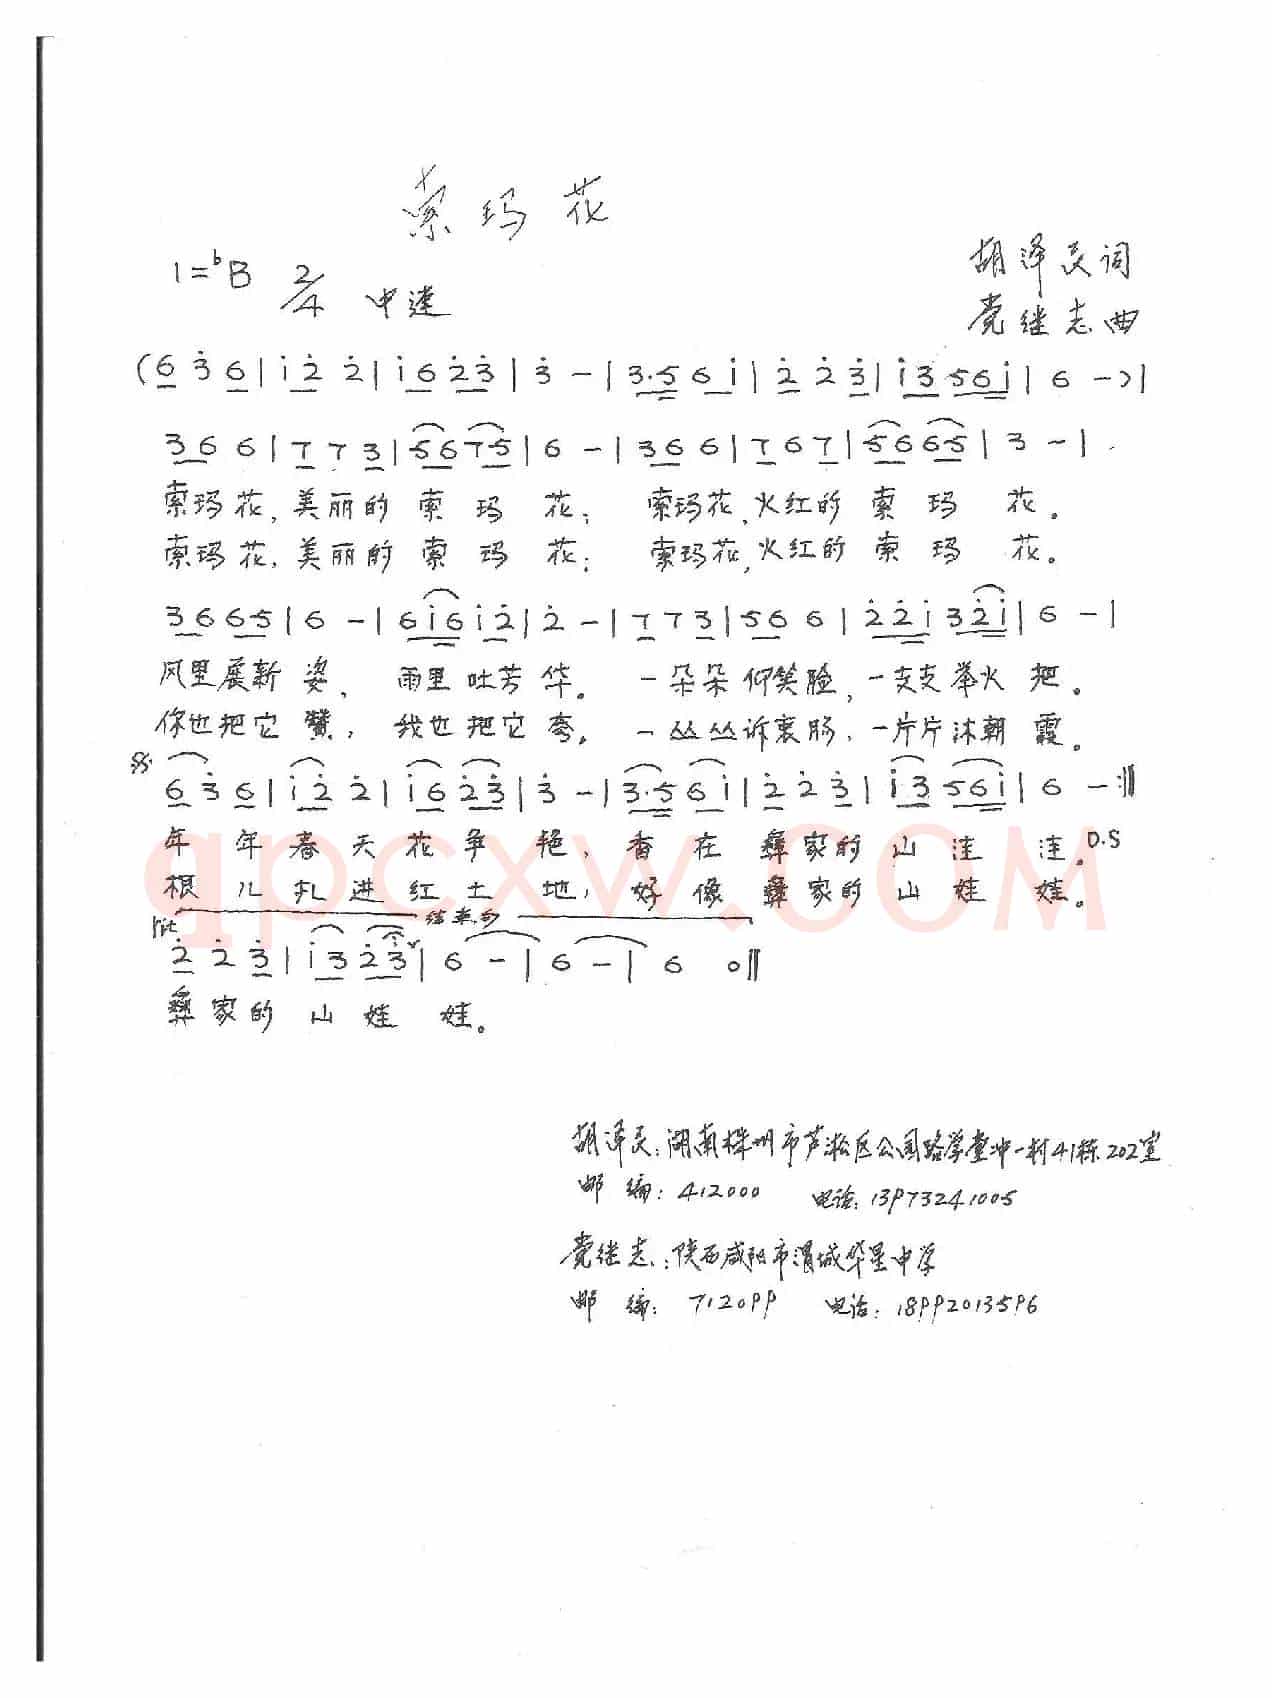 索玛花
1=♭B 2/4 中速
胡泽民词
党继志曲
(6 3̇ 6 | i 2̇ 2̇ | i 6 2̇ 3̇ | 3̇ － | 3·5 6 i | 2̇ 2̇ 3̇ | i 3 5 6 i | 6 － ) |
3 6 6 | 7 7 3 | 5 6 7 5 | 6 － | 3 6 6 | 7 6 7 | 5 6 6 5 | 3 － |
索玛花,美丽的索玛花; 索玛花,火红的索玛花。
索玛花,美丽的索玛花; 索玛花,火红的索玛花。
3 6 6 5 | 6 － | 6 i 6 i 2̇ | 2̇ － | 7 7 3 | 5 6 6 | 2̇ 2̇ i 3 2̇ i | 6 － |
风里展新姿, 雨里吐芳华。 一朵朵仰笑脸,一支支举火把。
你也把它赞, 我也把它夸。 一丛丛诉衷肠,一片片沐朝霞。
6 3̇ 6 | i 2̇ 2̇ | i 6 2̇ 3̇ | 3̇ － | 3·5 6 i | 2̇ 2̇ 3̇ | i 3 5 6 i | 6 － :‖
年年春天花争艳,香在彝家的山洼洼。 D.S
根儿扎进红土地,好像彝家的山娃娃。
rit 结束句
2̇ 2̇ 3̇ | i 3 2̇ 3̇ | 6 － | 6 － | 6 0 ‖
彝家的山娃娃。
胡泽民:湖南株州市芦淞区公园路学堂冲一村41栋202室
邮编:412000 电话:13973241005
党继志:陕西咸阳市渭城华星中学
邮编:712099 电话:18992013596
qpcxw.COM